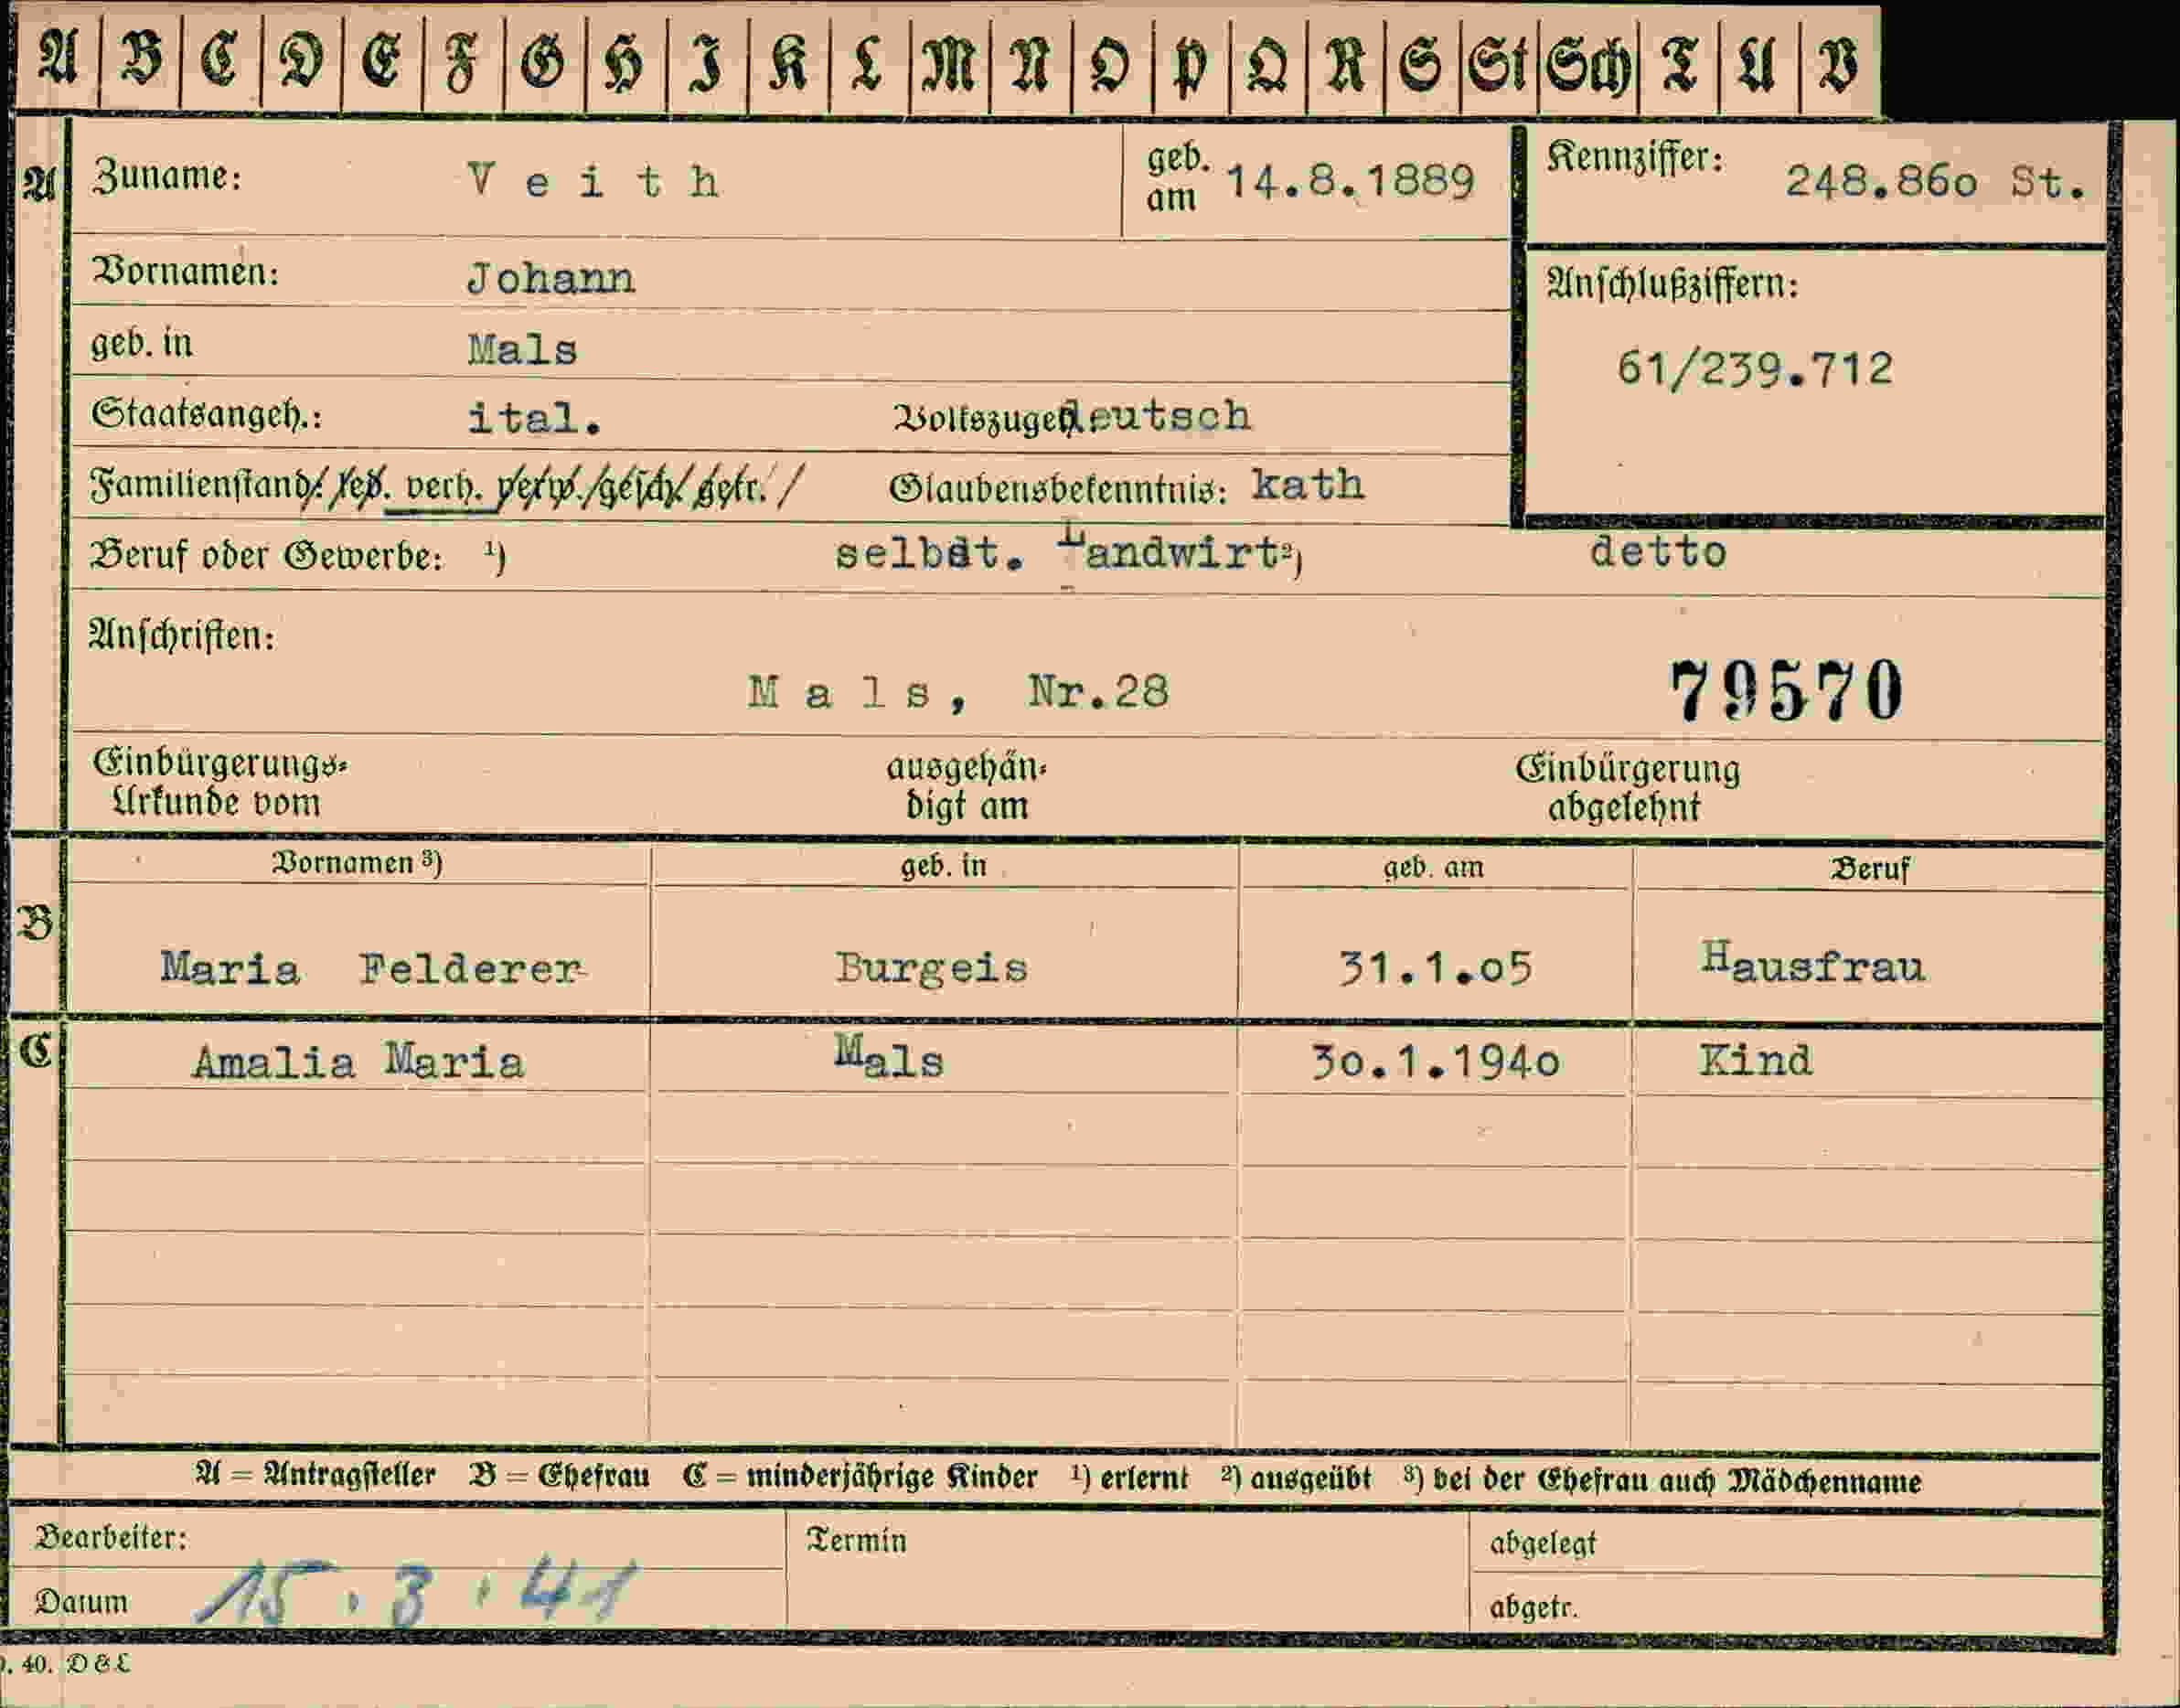 A B C D E F G H I K L M N O P Q R S St Sch T U V
A Zuname: Veith geb. am 14.8.1889 Kennziffer: 248.86o St.
Vornamen: Johann
Anschlußziffern:
geb. in Mals
61/239.712
Staatsangeh.: ital. Volkszugeh. deutsch
Familienstand: led. verh. verw. gesch. getr. Glaubensbekenntnis: kath
Beruf oder Gewerbe: ¹) selbst. Landwirt ²) detto
Anschriften:
Mals, Nr.28 79570
Einbürgerungs-Urkunde vom ausgehändigt am Einbürgerung abgelehnt
Vornamen ³) geb. in geb. am Beruf
B Maria Felderer Burgeis 31.1.o5 Hausfrau
C Amalia Maria Mals 3o.1.194o Kind
A = Antragsteller B = Ehefrau C = minderjährige Kinder ¹) erlernt ²) ausgeübt ³) bei der Ehefrau auch Mädchenname
Bearbeiter: Termin abgelegt
Datum 15.3.41 abgetr.
. 40. D&L